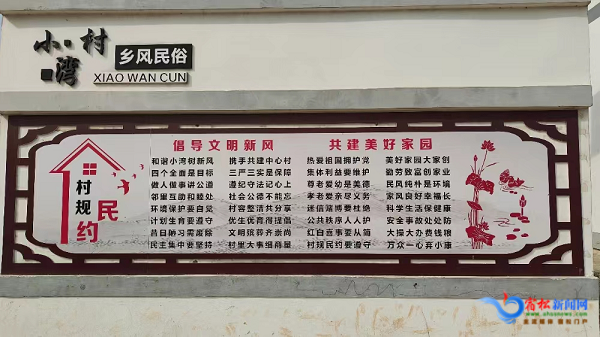 小·村湾
乡风民俗
XIAO WAN CUN
村规民约
倡导文明新风
共建美好家园
和谐小湾树新风 携手共建中心村 热爱祖国拥护党 美好家园大家创
四个全面是目标 三严三实是保障 集体利益要维护 勤劳致富创家业
做人做事讲公道 遵纪守法记心上 尊老爱幼是美德 民风纯朴是环境
邻里互助和睦处 社会公德不能忘 孝老爱亲尽义务 家风良好幸福长
环境保护要自觉 村容整洁共分享 迷信赌博要杜绝 科学生活保健康
计划生育要遵守 优生优育得提倡 公共秩序人人护 安全事故处处防
昔日陋习需废除 文明殡葬齐崇尚 红白喜事要从简 大操大办费钱粮
民主集中要坚持 村里大事细商量 村规民约要遵守 万众一心奔小康
宿松新闻网